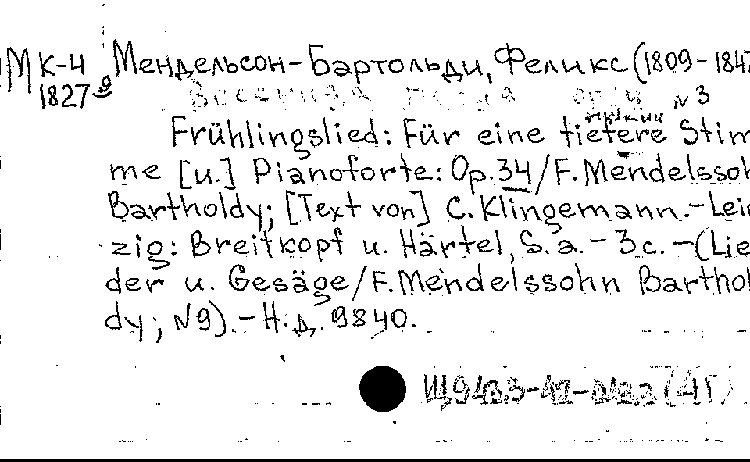 МК-4 Мендельсон-Бартольди, Феликс (1809-1847
1827
N3
Frühlingslied: Für eine tiefere Stim
me [u.] Pianoforte: Op. 34 / F. Mendelssoh
Bartholdy; [Text von] C. Klingemann.-Leip
zig: Breitkopf u. Härtel, S. a. - 3 с. - (Lie
der u. Gesäge / F. Mendelssohn Barthol
dy; N9). - Н. д. 9840.